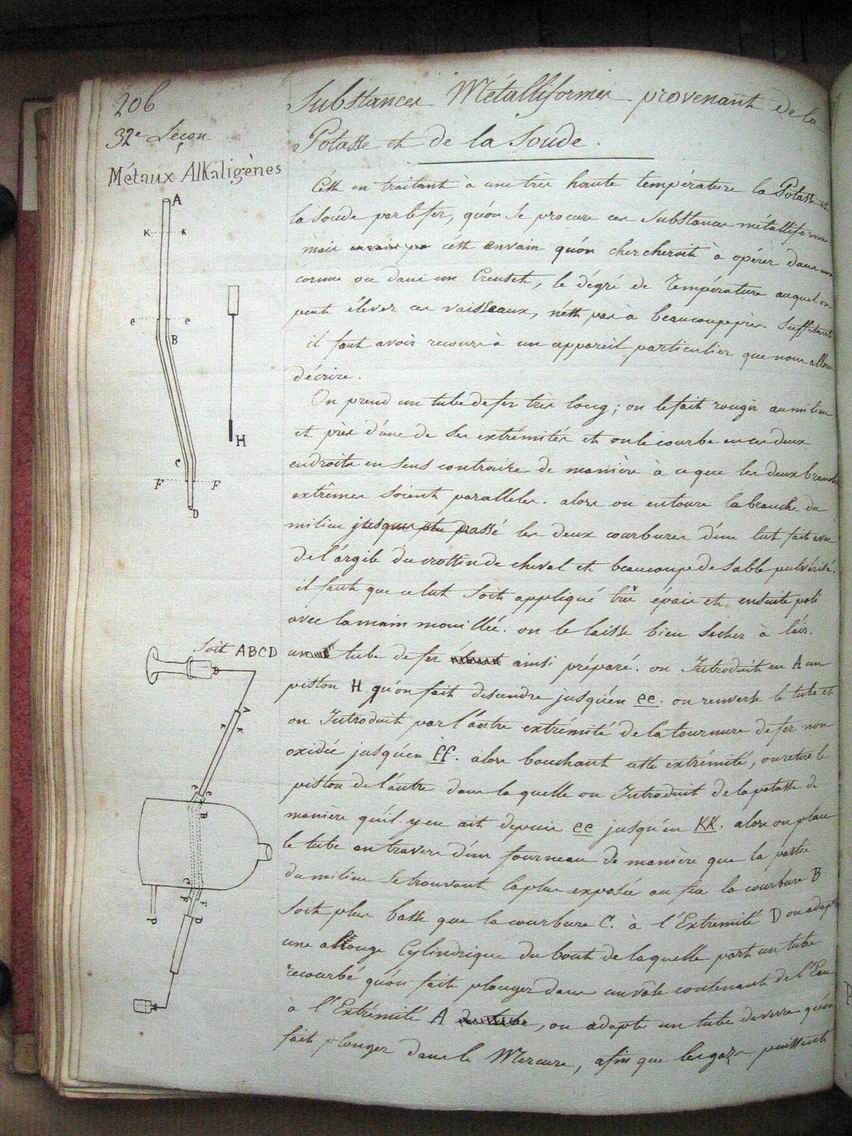 206
32e Leçon
Métaux Alkaligènes
A
K K
e e
B
H
C
F F
D
Soit ABCD
A
K K
e e
B
C
F F
P
D
Substances Métalliformes provenant de la
Potasse et de la Soude.
C'est en traitant à une très haute température la Potasse et
la Soude par le fer, qu'on se procure ces substances métalliformes
mais c'est envain qu'on chercheroit à opérer dans une
cornue ou dans un Creuset, le dégré de Température auquel on
peut élever ces vaisseaux, n'est pas à beaucoup près suffisant
il faut avoir recours à un appareil particulier que nous allons
décrire.
On prend un tube de fer très long; on le fait rougir au milieu
et près d'une de ses extrémités et on le courbe en ces deux
endroits en sens contraire de manière à ce que les deux branches
extrêmes soient paralleles. alors on entoure la branche du
milieu jusques passé les deux courbures d'un lut fait avec
de l'argile du crottin de cheval et beaucoup de sable pulvérisé.
il faut que ce lut soit appliqué très épais et ensuite poli
avec la main mouillée. on le laisse bien secher à l'air.
un tube de fer ainsi préparé. on Introduit en A un
piston H qu'on fait descendre jusqu'en ee. on renverse le tube et
on Introduit par l'autre extrémité de la tournure de fer non
oxidée jusqu'en ff. alors bouchant cette extrémité, on retire le
piston de l'autre dans laquelle on Introduit de la potasse de
manière qu'il y en ait depuis ee jusqu'en KK. alors on place
le tube en travers d'un fourneau de manière que la partie
du milieu se trouvant la plus exposée au feu la courbure B
soit plus basse que la courbure C. à l'Extremité D on adapte
une allonge Cylindrique du bout de laquelle part un tube
recourbé qu'on fait plonger dans un vase contenant de l'Eau
à l'Extrémité A, on adapte un tube de verre qu'on
fait plonger dans le Mercure, afin que les gaz puissent